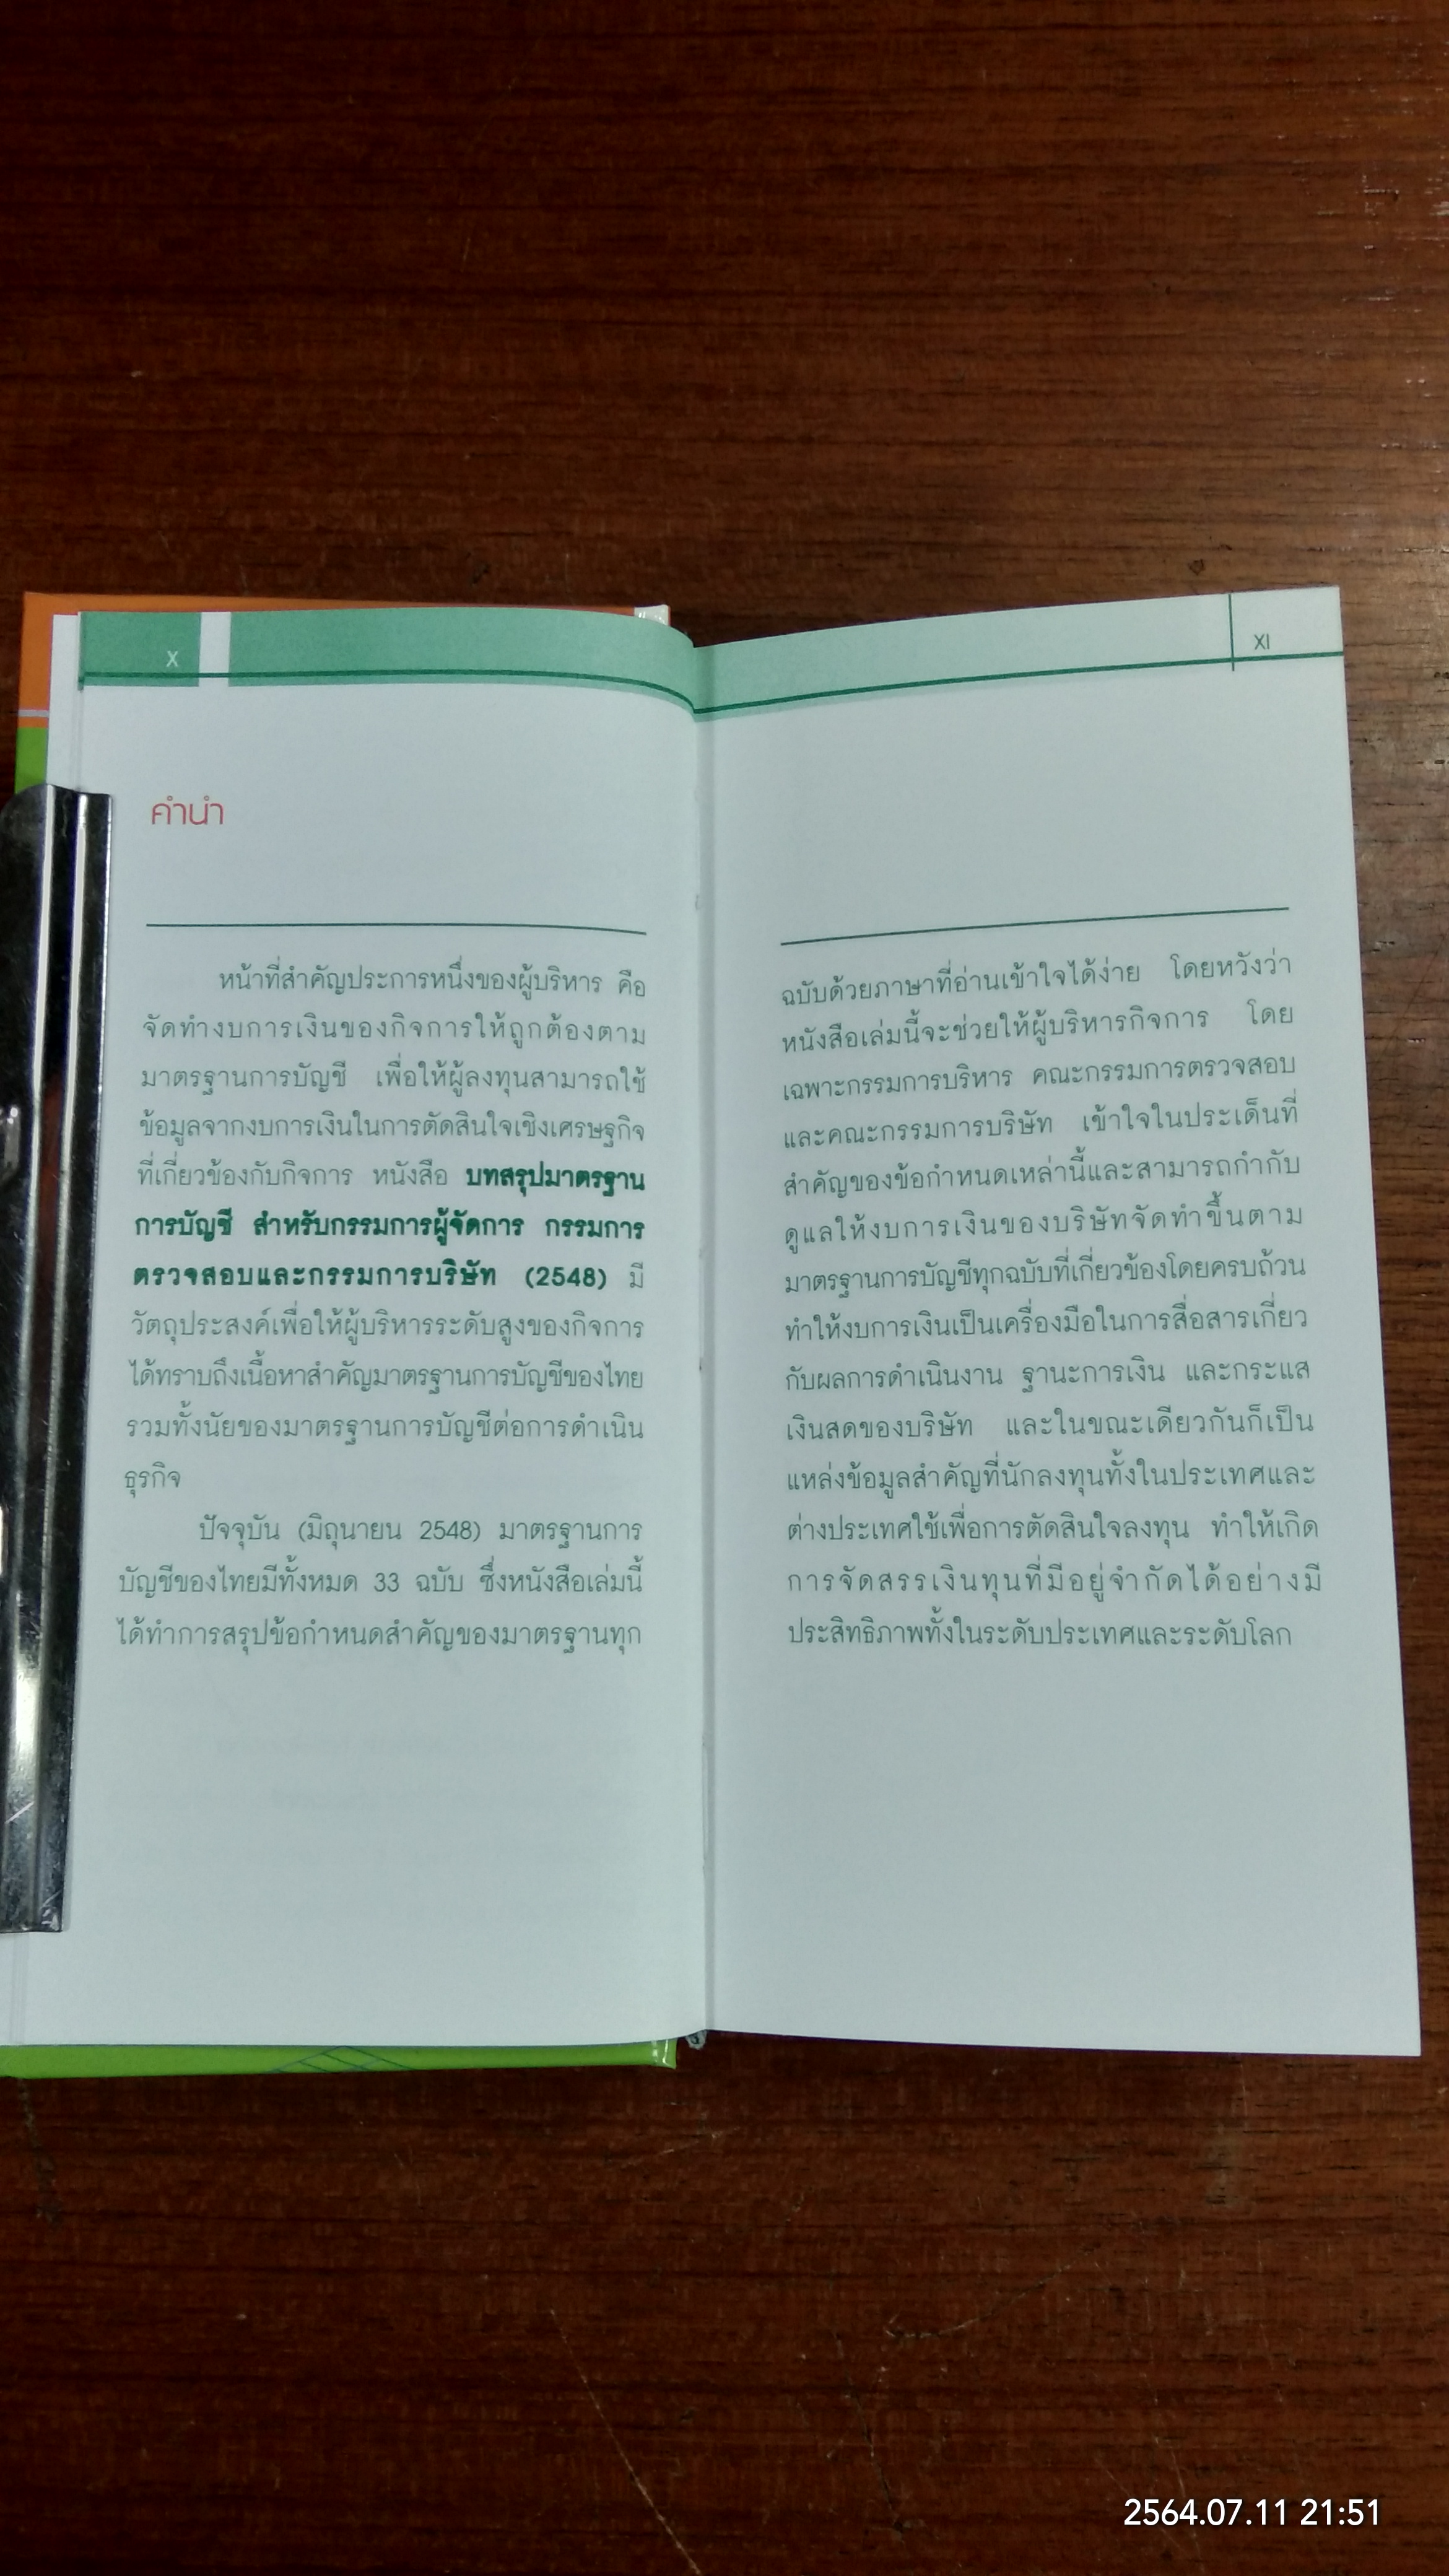 X
คำนำ
หน้าที่สำคัญประการหนึ่งของผู้บริหาร คือ
จัดทำงบการเงินของกิจการให้ถูกต้องตาม
มาตรฐานการบัญชี เพื่อให้ผู้ลงทุนสามารถใช้
ข้อมูลจากงบการเงินในการตัดสินใจเชิงเศรษฐกิจ
ที่เกี่ยวข้องกับกิจการ หนังสือ บทสรุปมาตรฐาน
การบัญชี สำหรับกรรมการผู้จัดการ กรรมการ
ตรวจสอบและกรรมการบริษัท (2548) มี
วัตถุประสงค์เพื่อให้ผู้บริหารระดับสูงของกิจการ
ได้ทราบถึงเนื้อหาสำคัญมาตรฐานการบัญชีของไทย
รวมทั้งนัยของมาตรฐานการบัญชีต่อการดำเนิน
ธุรกิจ
ปัจจุบัน (มิถุนายน 2548) มาตรฐานการ
บัญชีของไทยมีทั้งหมด 33 ฉบับ ซึ่งหนังสือเล่มนี้
ได้ทำการสรุปข้อกำหนดสำคัญของมาตรฐานทุก
XI
ฉบับด้วยภาษาที่อ่านเข้าใจได้ง่าย โดยหวังว่า
หนังสือเล่มนี้จะช่วยให้ผู้บริหารกิจการ โดย
เฉพาะกรรมการบริหาร คณะกรรมการตรวจสอบ
และคณะกรรมการบริษัท เข้าใจในประเด็นที่
สำคัญของข้อกำหนดเหล่านี้และสามารถกำกับ
ดูแลให้งบการเงินของบริษัทจัดทำขึ้นตาม
มาตรฐานการบัญชีทุกฉบับที่เกี่ยวข้องโดยครบถ้วน
ทำให้งบการเงินเป็นเครื่องมือในการสื่อสารเกี่ยว
กับผลการดำเนินงาน ฐานะการเงิน และกระแส
เงินสดของบริษัท และในขณะเดียวกันก็เป็น
แหล่งข้อมูลสำคัญที่นักลงทุนทั้งในประเทศและ
ต่างประเทศใช้เพื่อการตัดสินใจลงทุน ทำให้เกิด
การจัดสรรเงินทุนที่มีอยู่จำกัดได้อย่างมี
ประสิทธิภาพทั้งในระดับประเทศและระดับโลก
2564.07.11 21:51